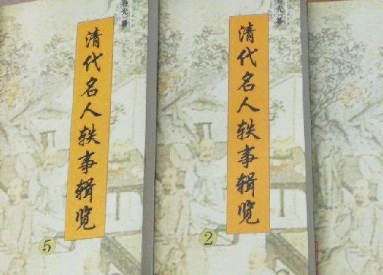 清代名人轶事辑览
5
清代名人轶事辑览
2